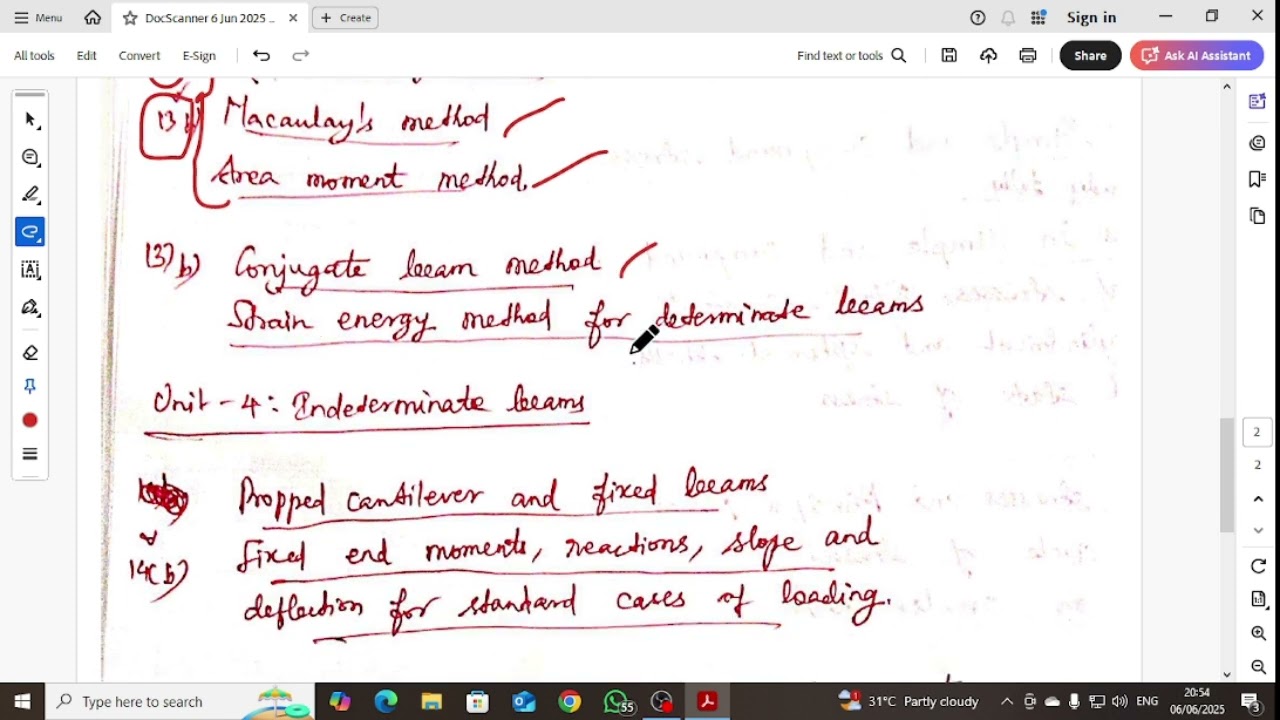 Menu
DocScanner 6 Jun 2025 ...
Create
Sign in
All tools
Edit
Convert
E-Sign
Find text or tools
Share
Ask AI Assistant
13
Macaulay's method
Area moment method.
13) b) Conjugate beam method
Strain energy method for determinate beams
Unit - 4: Indeterminate beams
Propped cantilever and fixed beams
14(b) fixed end moments, reactions, slope and
deflection for standard cases of loading.
2
2
Type here to search
55
31°C Partly cloudy
ENG
20:54
06/06/2025
3